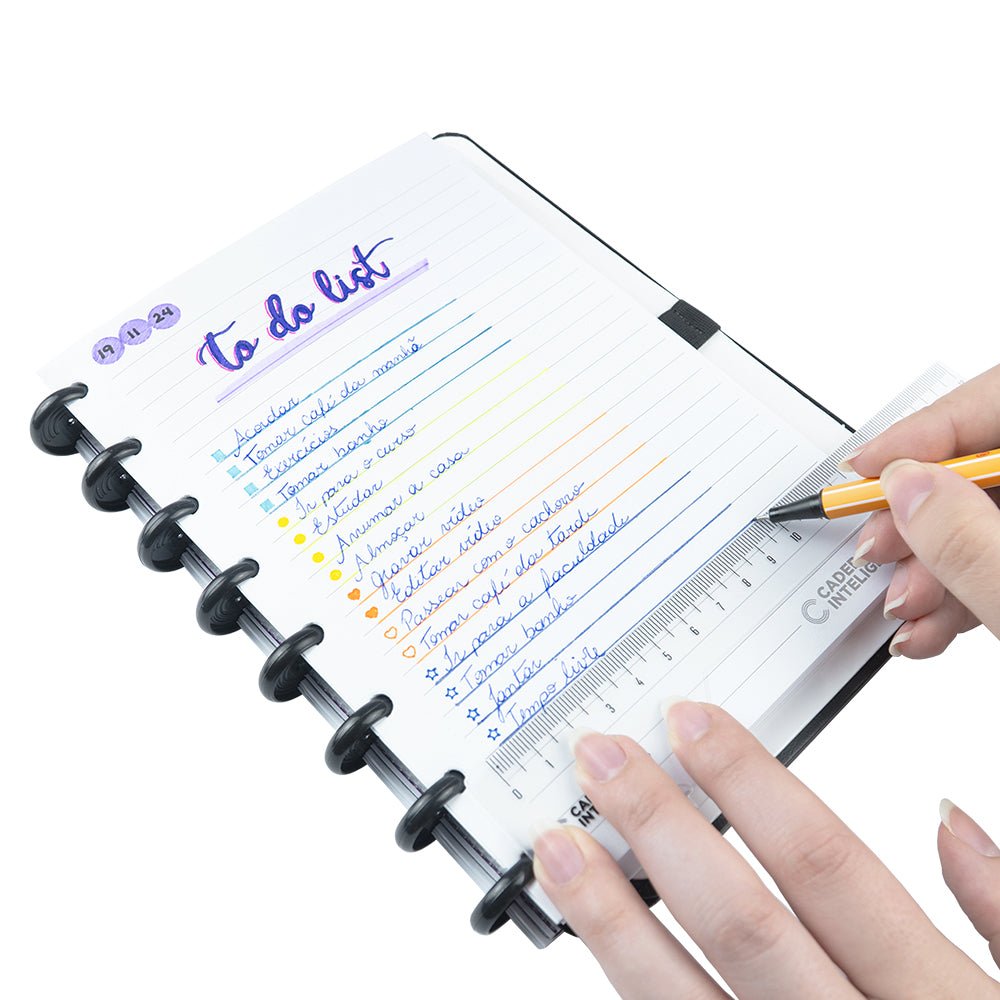 19 11 24
to do list
Acordar
Tomar café da manhã
Exercícios
Tomar banho
Ir para o curso
Estudar
Arrumar a casa
Almoçar
Gravar vídeo
Editar vídeo
Passear com o cachorro
Tomar café da tarde
Ir para a faculdade
Tomar banho
Jantar
Tempo livre
0 1 3 4 5 6 7 8 9 10
CADER
INTELIG
CAD
INT